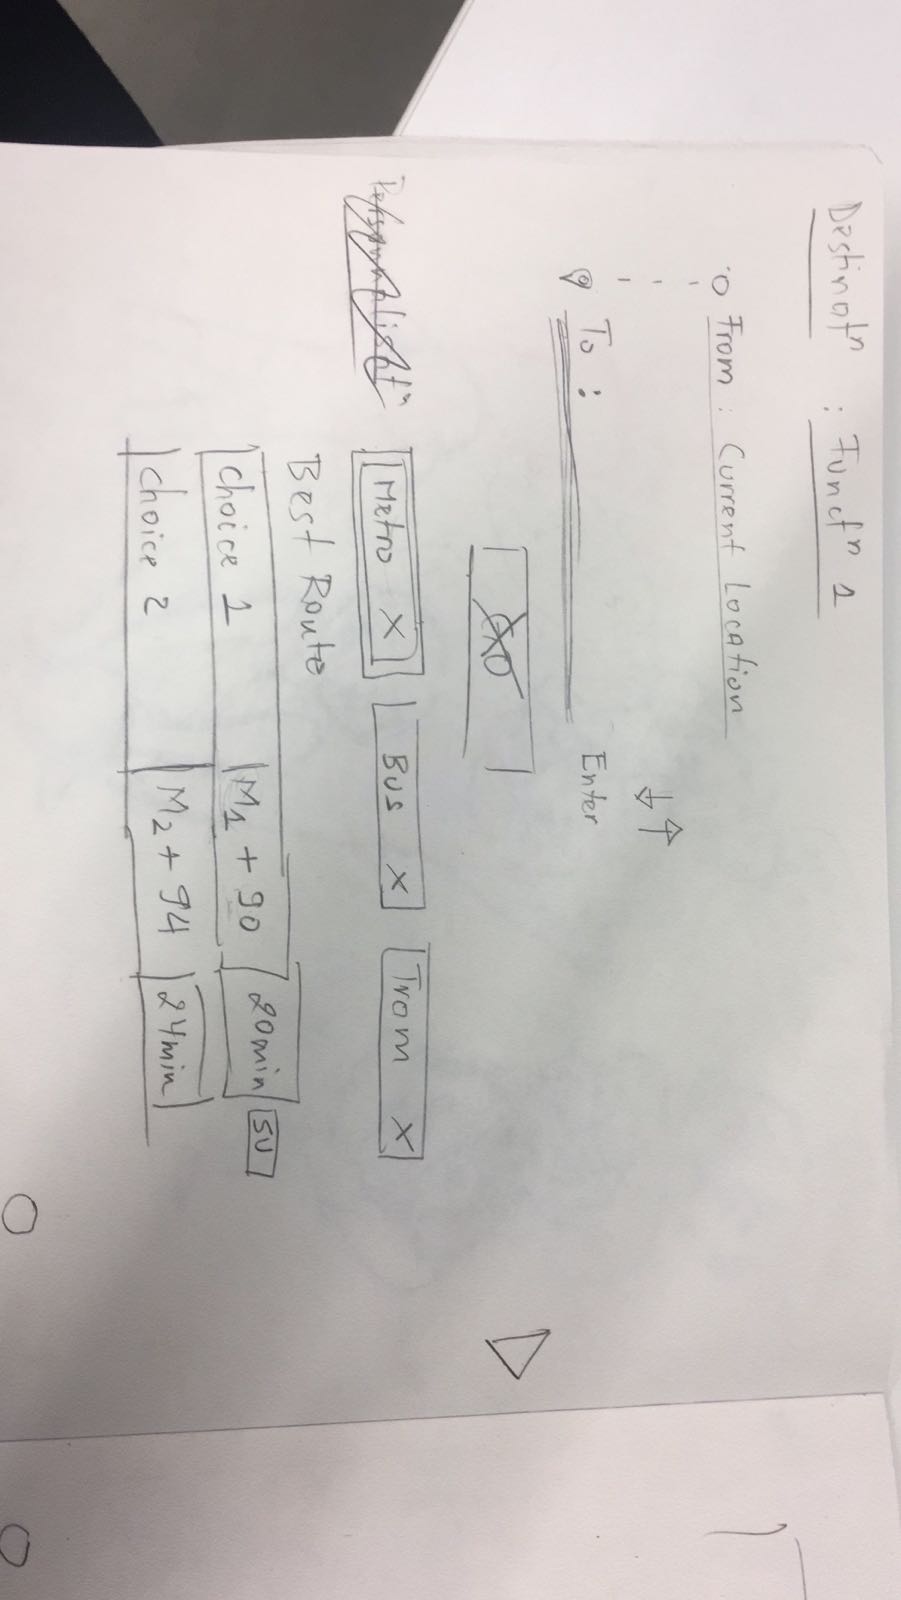 Destinatⁿ : Functⁿ 1
From : Current Location
To : Enter
GO
Personalisatⁿ
Metro X Bus X Tram X
Best Route
Choice 1 M1 + 90 20min SU
Choice 2 M2 + 94 24min